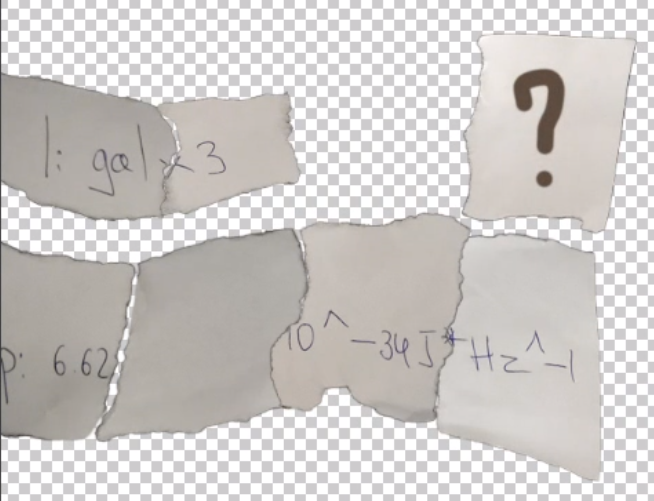 ?
1: gal x 3
p: 6.62 10^-34J*Hz^-1